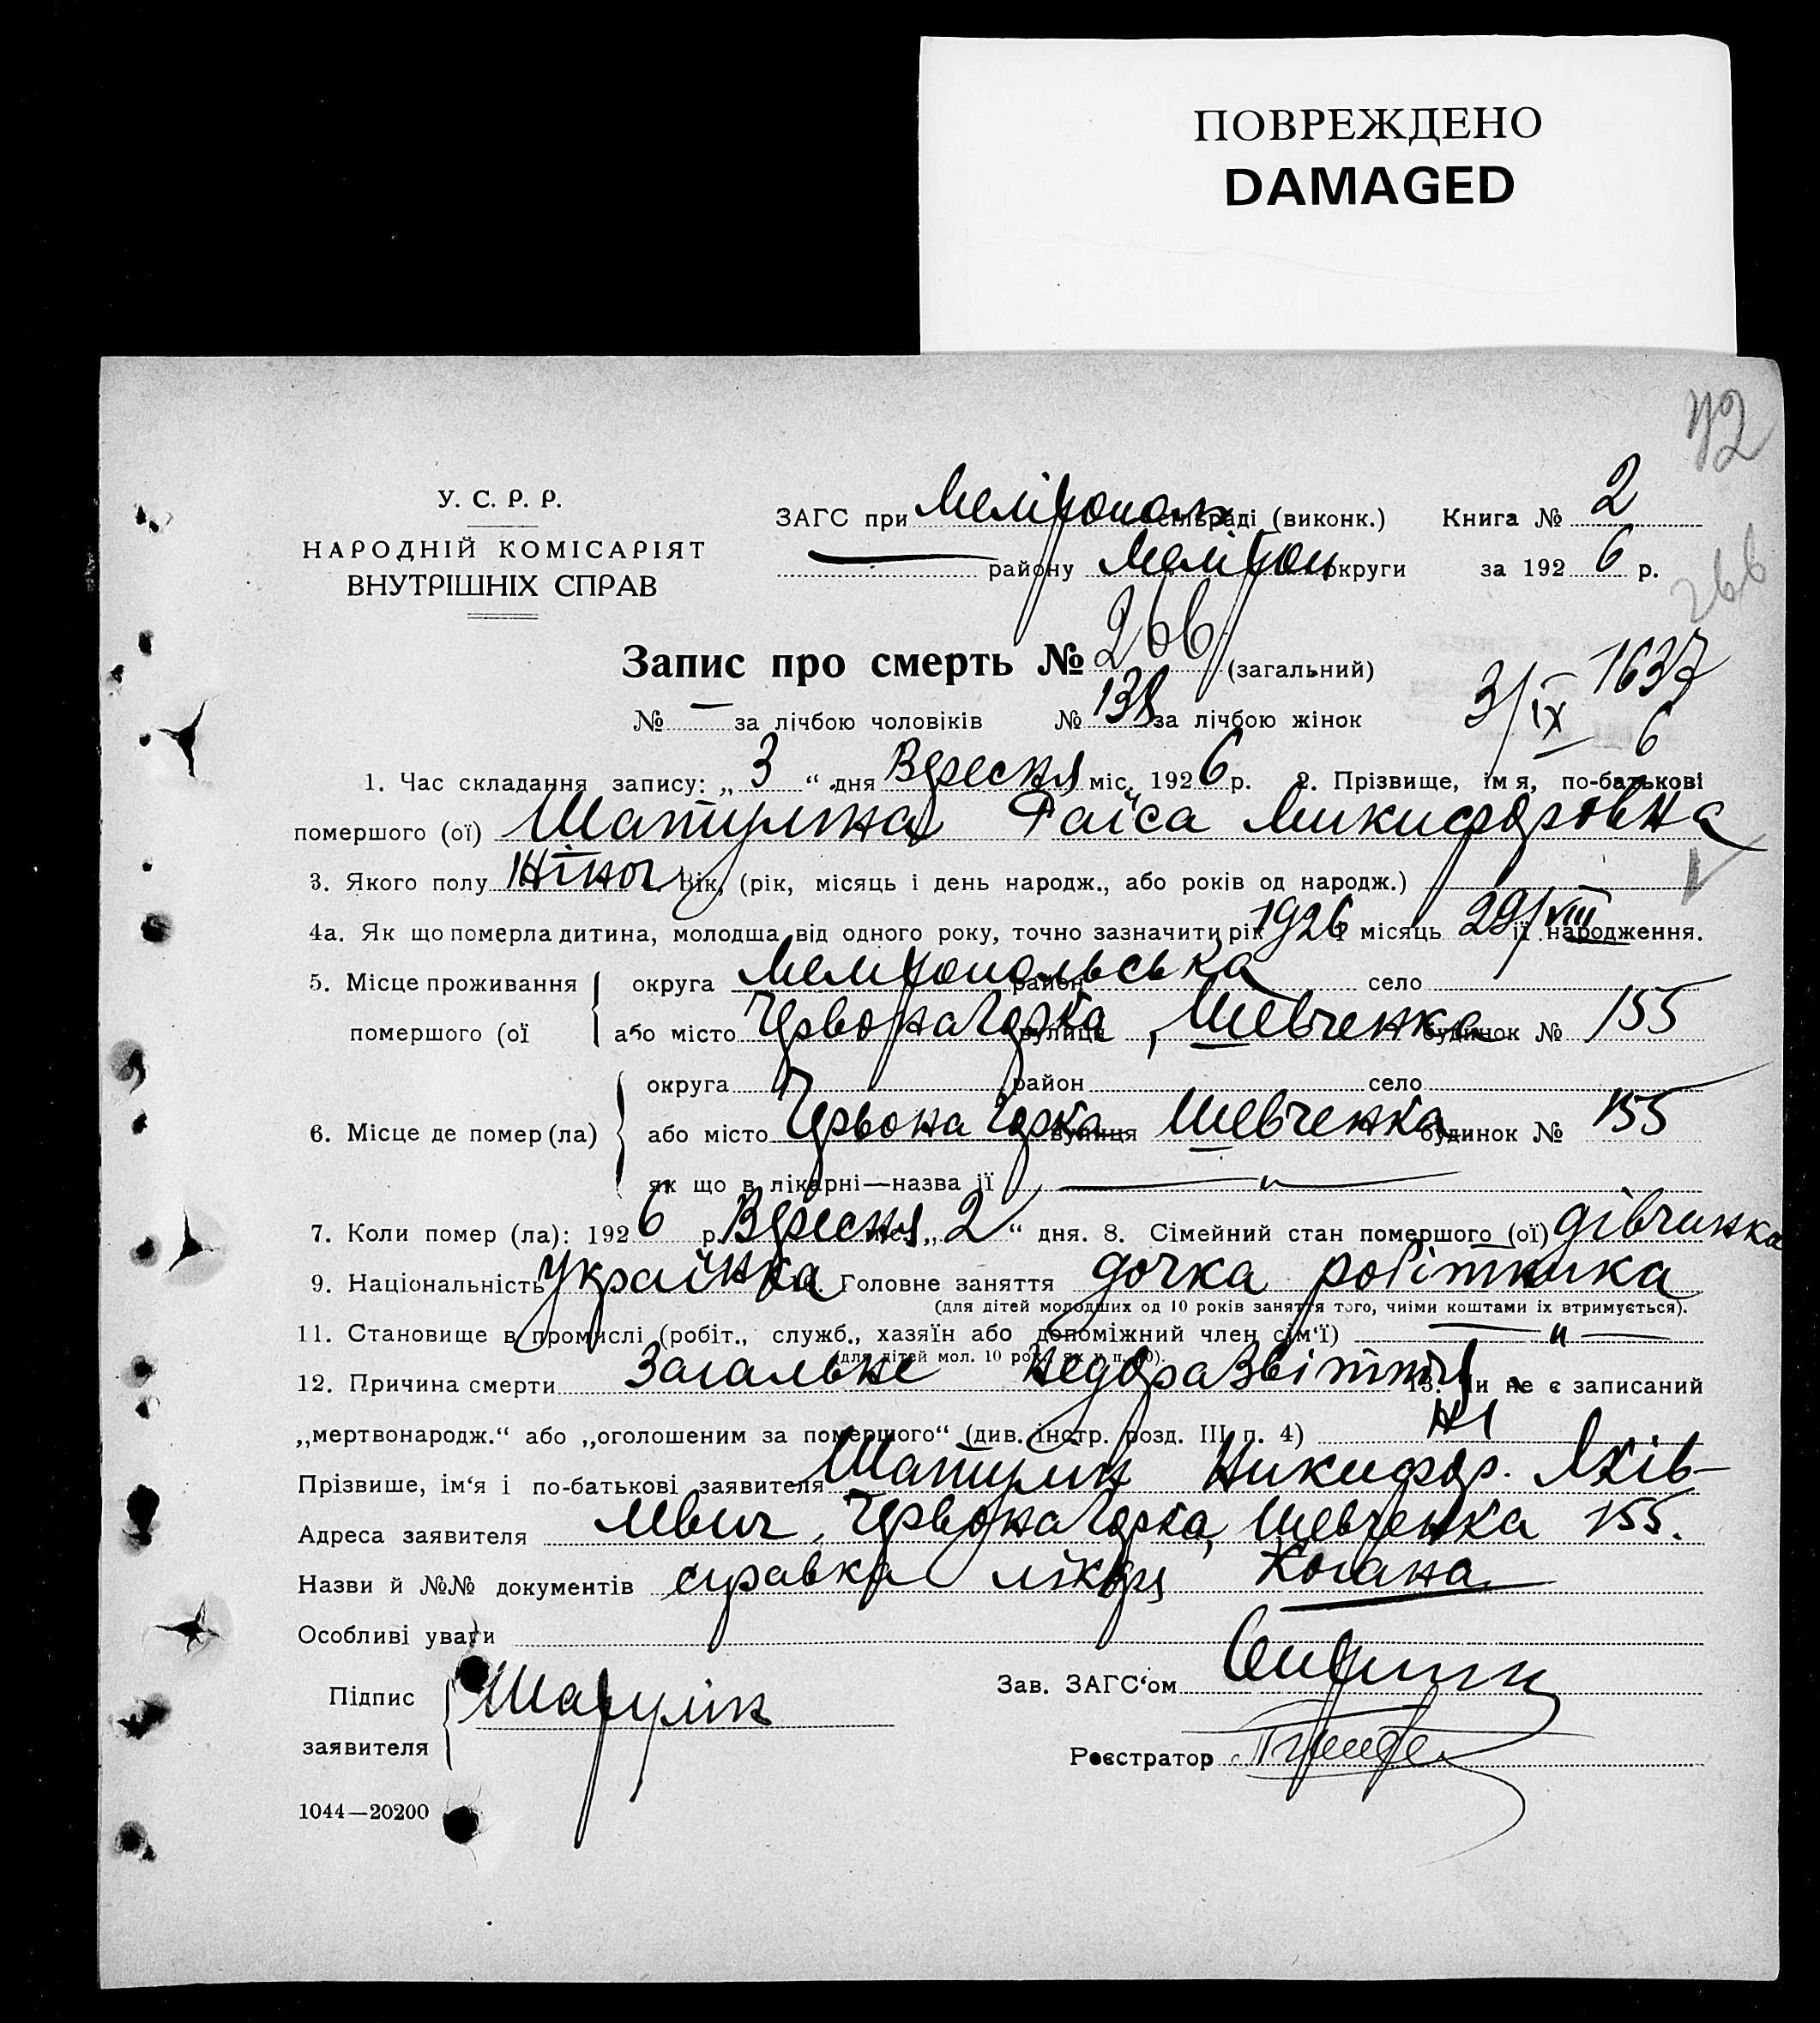 ПОВРЕЖДЕНО
DAMAGED
42
У. С. Р. Р.
НАРОДНІЙ КОМІСАРІЯТ
ВНУТРІШНІХ СПРАВ
ЗАГС при Мелітополь сільраді (виконк.) Книга № 2
— району Мелітоп округи за 1926 р.
266
Запис про смерть № 266 (загальний)
№ — за лічбою чоловіків № 138 за лічбою жінок
1637
3/IX 6
1. Час складання запису: „3“ дня Вересня міс. 1926 р. 2. Прізвище, імя, по-батькові
помершого (ої) Шатулина Раїса Микифоровна
3. Якого полу Жіноч Вік, (рік, місяць і день народж., або років од народж.)
4а. Як що померла дитина, молодша від одного року, точно зазначити рік 1926 місяць 29/VIII її народження.
5. Місце проживання помершого (ої
округа Мелітопольська район село
або місто Червона Горка вулиця, Шевченка будинок № 155
6. Місце де помер (ла)
округа район село
або місто Червона Горка вулиця Шевченка будинок № 155
як що в лікарні—назва її — „ —
7. Коли помер (ла): 1926 р. Вересня міс. „2“ дня. 8. Сімейний стан помершого (ої) дівчинка
9. Національність Українка Головне заняття дочка робітника
(для дітей молодших од 10 років заняття того, чиїми коштами їх втримується).
11. Становище в промислі (робіт., служб., хазяїн або допоміжний член сім'ї) — „ —
(для дітей мол. 10 рок. як у п. 10).
12. Причина смерти Загальне недоразвіття 13. Чи не є записаний
„мертвонародж.“ або „оголошеним за помершого“ (див. інстр. розд. III п. 4) ні
Прізвише, ім'я і по-батькові заявителя Шатулин Никифор.
Адреса заявителя Червона Горка, Шевченка 155.
Назви й №№ документів справка лікаря Когана
Особливі уваги
Підпис
заявителя
Шатулін
Зав. ЗАГС'ом
Реєстратор
1044—20200